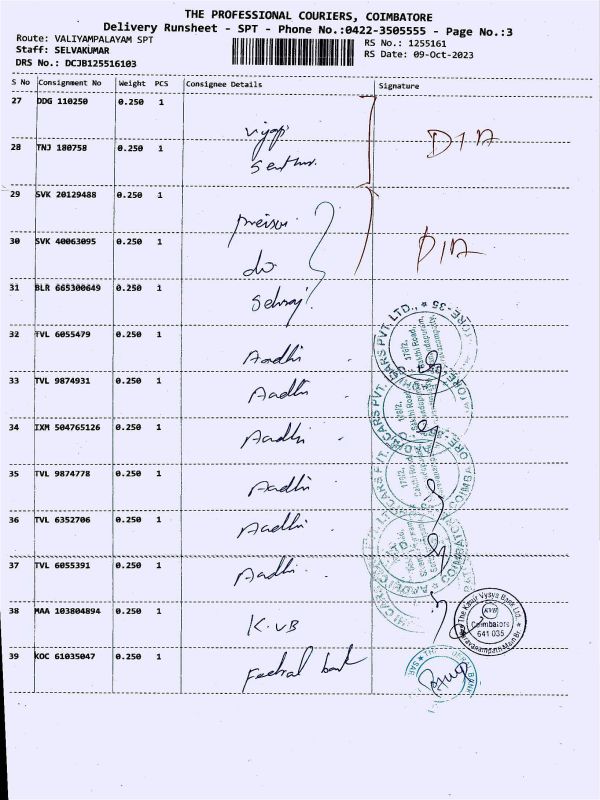 THE PROFESSIONAL COURIERS, COIMBATORE
Delivery Runsheet - SPT - Phone No.:0422-3505555 - Page No.:3
Route: VALIYAMPALAYAM SPT
Staff: SELVAKUMAR
DRS No.: DCJB125516103
RS No.: 1255161
RS Date: 09-Oct-2023
S No Consignment No Weight PCS Consignee Details Signature
27 DDG 110250 0.250 1
28 TNJ 180758 0.250 1
29 SVK 20129488 0.250 1
30 SVK 40063095 0.250 1 do
31 BLR 665300649 0.250 1 Selvraj
32 TVL 6055479 0.250 1 Aadhi
33 TVL 9874931 0.250 1 Aadhi
34 IXM 504765126 0.250 1 Aadhi
35 TVL 9874778 0.250 1 Aadhi
36 TVL 6352706 0.250 1 Aadhi
37 TVL 6055391 0.250 1 Aadhi
38 MAA 103804894 0.250 1 K.VB
The Karur Vysya Bank Ltd.
KVB
Coimbatore
641 035
39 KOC 61035047 0.250 1 Fedral bank